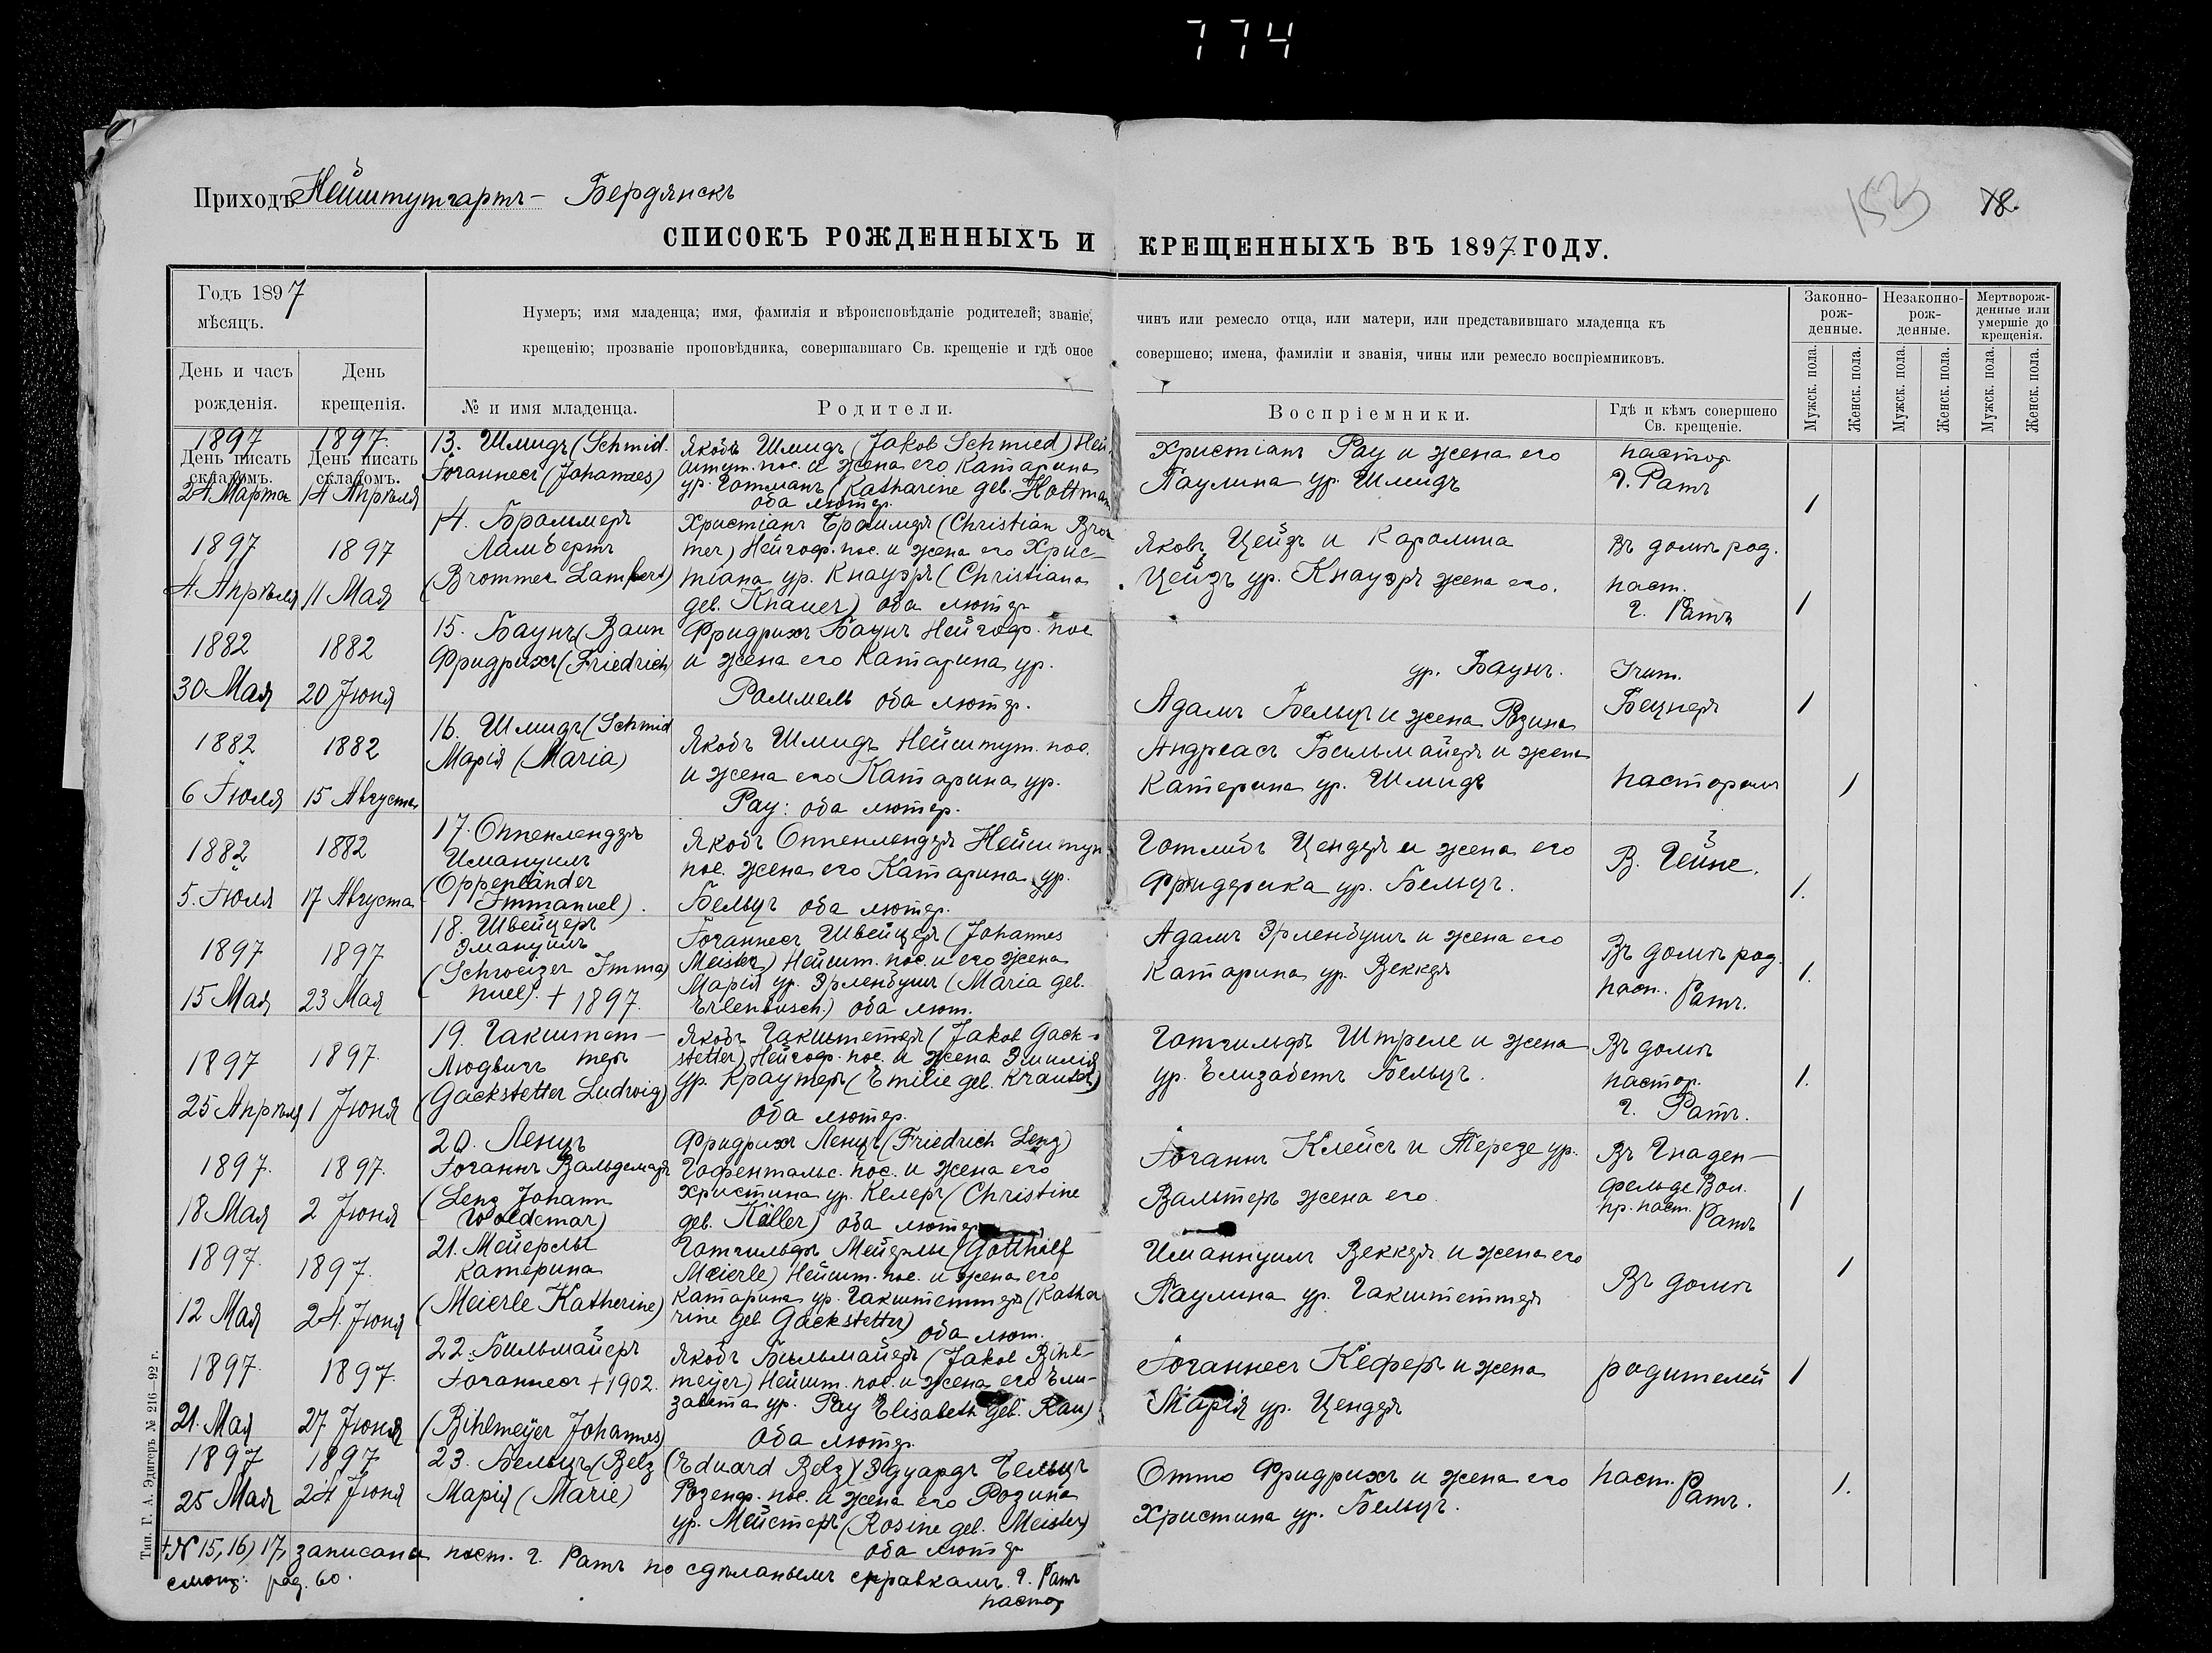 774
Приходъ Нейштутгартъ – Бердянскъ
153 78.
СПИСОКЪ РОЖДЕННЫХЪ И КРЕЩЕННЫХЪ ВЪ 1897 ГОДУ.
Годъ 1897
мѣсяцъ.
День и часъ
рожденія.
День
крещенія.
Нумеръ; имя младенца; имя, фамилія и вѣроисповѣданіе родителей; званіе, чинъ или ремесло отца, или матери, или представившаго младенца къ
крещенію; прозваніе проповѣдника, совершавшаго Св. крещеніе и гдѣ оное совершено; имена, фамиліи и званія, чины или ремесло воспріемниковъ.
№ и имя младенца.
Родители.
Воспріемники.
Гдѣ и кѣмъ совершено
Св. крещеніе.
Законно-
рож-
денные.
Незаконно-
рож-
денные.
Мертворож-
денные или
умершіе до
крещенія.
Мужск. пола.
Женск. пола.
Мужск. пола.
Женск. пола.
Мужск. пола.
Женск. пола.
1897
День писать
складомъ.
24 Марта
1897.
День писать
складомъ.
14 Апрѣля
13. Шмидъ (Schmid.
Іоганнесъ (Johannes)
Якобъ Шмидъ (Jakob Schmied) Ней
штут. пос. и жена его Катарина
ур. Готманъ (Katharine geb. Hottman
оба лютер.
Христіанъ Рау и жена его
Паулина ур. Шмидъ
пастор
Г. Ратъ
1
1897
4 Апрѣля
1897
11 Мая
14. Броммеръ
Ламбертъ
(Brommer Lambert)
Христіанъ Броммеръ (Christian Brom
mer) Нейгоф. пос. и жена его Хрис-
тіана ур. Кнауэръ (Christiana
geb. Knauer) оба лютер
Яковъ Цейзъ и Каролина
Цейзъ ур. Кнауэръ жена его.
Въ домѣ род.
паст.
Г. Ратъ
1
1882
30 Мая
1882
20 Іюня
15. Баунъ (Baun
Фридрихъ (Friedrich)
Фридрихъ Баунъ Нейгоф. пос
и жена его Катарина ур.
Роммель оба лютер.
ур. Баунъ.
Адамъ Бельцъ и жена Розина
Бецнеръ
1
1882
6 Іюля
1882
15 Августа
16. Шмидъ (Schmid
Марія (Maria)
Якобъ Шмидъ Нейштут. пос.
и жена его Катарина ур.
Рау: оба лютер.
Андреасъ Бильмайеръ и жена
Катерина ур. Шмидъ
пасторомъ
1
1882
5. Іюля
1882
17 Августа
17. Оппенлендеръ
Имануилъ
(Oppenländer
Immanuel).
Якобъ Оппенлендеръ Нейштут
пос. жена его Катарина ур.
Бельцъ оба лютер.
Готлибъ Цендеръ и жена его
Фридерика ур. Бельцъ.
В. Гейне.
1.
1897
15 Мая
1897
23 Мая
18. Швейцеръ
Эмануилъ
(Schweizer Imma
nuel). + 1897.
Іоганнесъ Швейцеръ (Johannes
Meister) Нейшт. пос. и его жена
Марія ур. Эрленбушъ (Maria geb.
Erlenbusch.) оба лют.
Адамъ Эрленбушъ и жена его
Катарина ур. Веккеръ
Въ домѣ род.
паст. Ратъ.
1.
1897
25 Апрѣля
1897.
1 Іюня
19. Гакштет-
Людвигъ теръ
(Gackstetter Ludwig)
Якобъ Гакштетеръ (Jakob Gack-
stetter) Нейгоф. пос. и жена Эмилія
ур. Краутеръ (Emilie geb. Krauter)
оба лютер.
Готгильфъ Штреле и жена
ур. Елизабетъ Бельцъ.
Въ домѣ
пастор.
Г. Ратъ.
1.
1897.
18 Мая
1897.
2 Іюня
20. Ленцъ
Іоганнъ Вальдемаръ
(Lenz Johann
Woldemar)
Фридрихъ Ленцъ (Friedrich Lenz)
Гофентальс. пос. и жена его
Христина ур. Келеръ (Christine
geb. Käller) оба лютер
Іоганнъ Клейсъ и Терезе ур.
Вальтеръ жена его.
Въ Гнаден-
фельде Вол.
пр. паст. Ратъ
1
1897.
12 Мая
1897.
24. Іюня
21. Мейерлы
Катерина
(Meierle Katherine)
Готгильфъ Мейерлы (Gotthilf
Meierle) Нейшт. пос. и жена его
Катарина ур. Гакштеттеръ (Katha
rine geb Gackstetter)
оба лют.
Иммануилъ Веккеръ и жена его
Паулина ур. Гакштеттеръ
Въ домѣ
1
1897.
21. Мая
1897.
27 Іюня
22. Бильмайеръ
Іоганнесъ +1902.
(Bihlmeyer Johannes)
Якобъ Бильмайеръ (Jakob Bihl-
meyer) Нейшт. пос. и жена его Ели-
завета ур. Рау Elisabeth geb. Rau)
оба лютер.
Іоганнесъ Кеферъ и жена
Марія ур. Цендеръ
родителей
1
1897
25 Мая
1897
24 Іюня
23. Бельцъ (Belz
Марія (Marie)
(Eduard Belz) Эдуардъ Бельцъ
Розенф. пос. и жена его Розина
ур. Мейстеръ (Rosine geb. Meister)
оба лютер
Отто Фридрихъ и жена его
Христина ур. Бельцъ.
паст. Ратъ.
1.
+№ 15, 16, 17, записаны паст. Г. Ратъ по сдѣланымъ справкамъ. Г. Ратъ
смотр. pag. 60.
пастор
Тип. Г. А. Эдигеръ № 216—92 г.